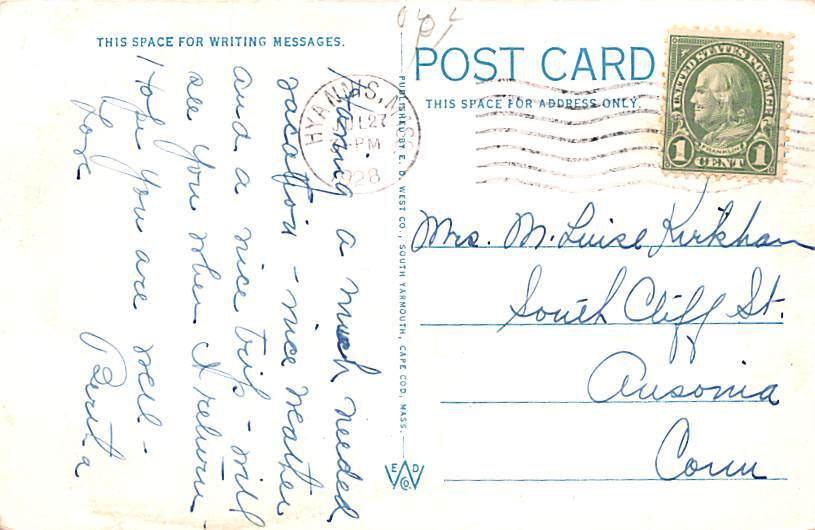 THIS SPACE FOR WRITING MESSAGES.
Having a much needed
vacation - nice weather
and a nice trip - will
see you when I return -
Hope you are well -
Love
Berta
PUBLISHED BY E. D. WEST CO., SOUTH YARMOUTH, CAPE COD, MASS.
E D
W
CO
POST CARD
THIS SPACE FOR ADDRESS ONLY.
HYANNIS, MASS
JUL 27
PM
1928
UNITED STATES POSTAGE
FRANKLIN
1 CENT 1
Mrs. M. Luise Kirkham
South Cliff St.
Ansonia
Conn